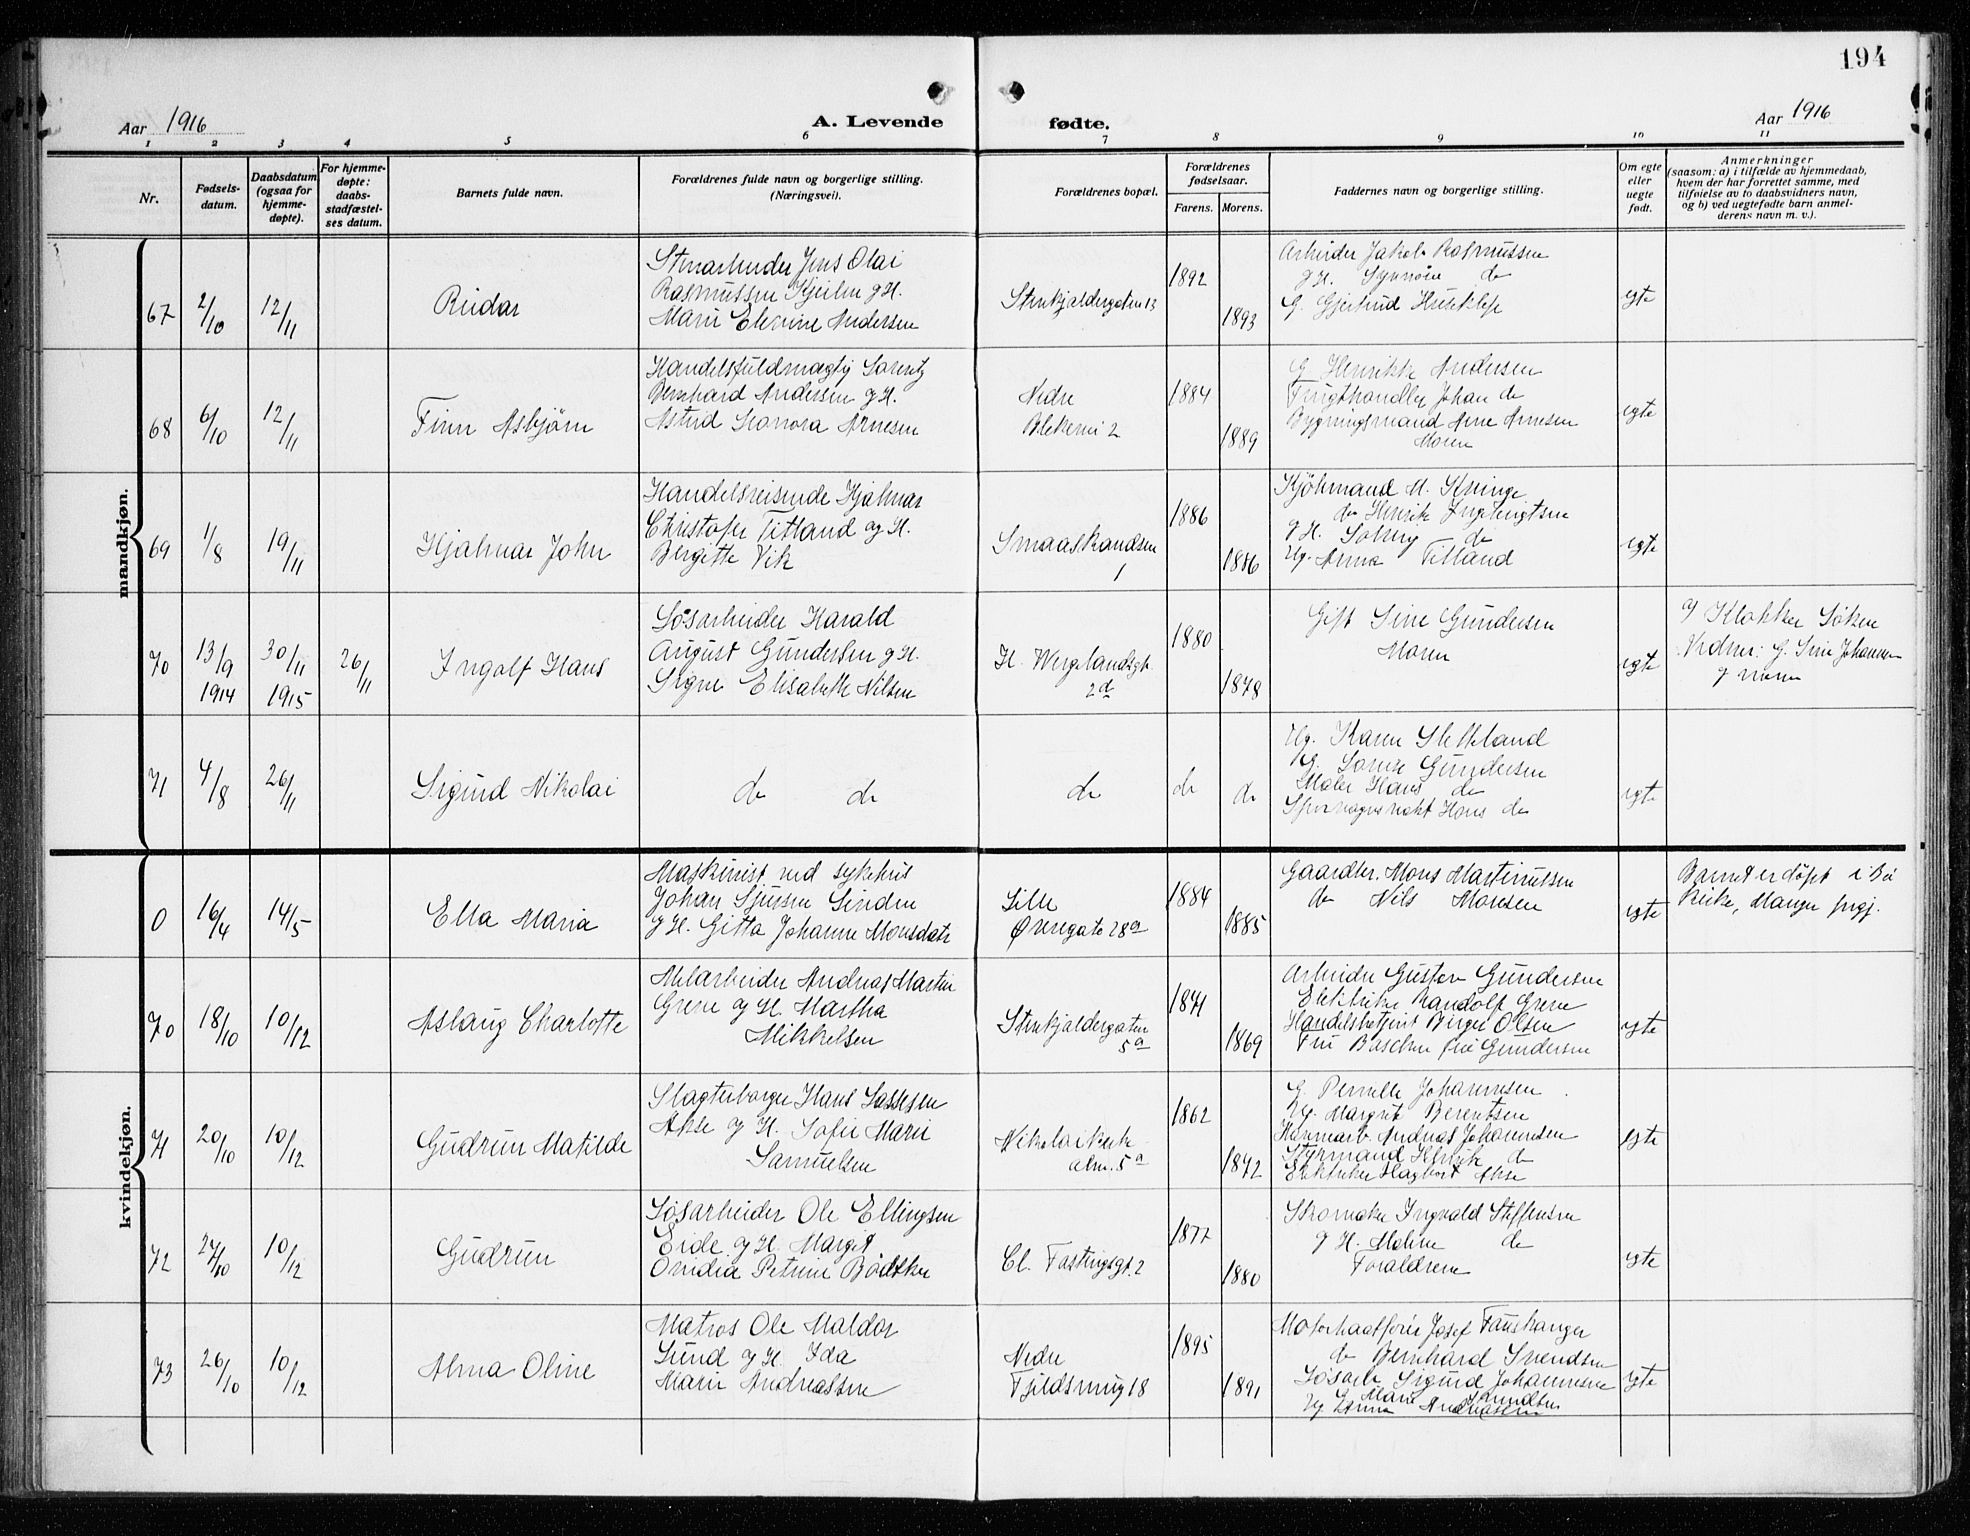 194
Aar 1916 A. Levende fødte. Aar 1916
1 2 3 4 5 6 7 8 9 10 11
Nr.
Fødsels-
datum.
Daabsdatum
(ogsaa for
hjemme-
døpte).
For hjemme-
døpte:
daabs-
stadfæstel-
ses datum.
Barnets fulde navn.
Forældrenes fulde navn og borgerlige stilling.
(Næringsvei).
Forældrenes bopæl.
Forældrenes
fødselsaar.
Farens. Morens.
Faddernes navn og borgerlige stilling.
Om egte
eller
uegte
født.
Anmerkninger
(saasom: a) i tilfælde av hjemmedaab,
hvem der har forrettet samme, med
tilføielse av to daabsvidners navn,
og b) ved uegtefødte barn anmel-
derens navn m. v.).
mandkjøn.
67 2/10 12/11 Reidar
Stenarbeider Jens Olai
Rasmussen Kjeilen g H.
Marie Elevine Andersen
Stenkjeldergaten 13
1892
1893
Arbeider Jakob Rasmussen
g H. Synnøve do
G. Gjertrud Huseklep
egte
68 6/10 12/11 Finn Asbjørn
Handelsfuldmægtig Lorentz
Bernhard Andersen g H.
Astrid Leonora Arnesen
Nedre
Blekevei 2
1884
1889
G Henrikke Andersen
Frugthandler Johan do
Bygningsmand Arne Arnesen
Moren
egte
69 1/8 19/11 Hjalmar John
Handelsreisende Hjalmar
Christofer Titland og H.
Bergitte Vik
Smaastrandsen
1
1886
1886
Kjøbmand M.
do Henrik Ingebrigtsen
g H. Solveig do
Ug. Anna Titland
egte
70 13/9 1914 30/11 1915 26/11 Ingolf Hans
Søsarbeider Harald
August Gundersen g H.
Signe Elisabeth Nilsen
H. Wergelandsgt.
2d
1880
1878
Gift Sine Gundersen
Moren
egte
a) Klokker Söken
Vidner: G. Sine Johannesen
g moren
71 4/8 26/11 Sigurd Nikolai
do do
do
do
do
Ug. Karen Sletteland
Ug. Gundersen
Maler Hans do
Sporvognsvakt Hans do
egte
kvindekjøn.
0 16/4 14/5 Ella Maria
Maskinist ved sykehus
Johan Sjursen Sindre
g H. Gitta Johanne Monsdatr
Lille
Øvregate 28a
1884
1885
Gaardbr. Mons Martinussen
do Nils Monsen
egte
Barnet er døpt i Bø
Kirke, Manger prgj.
70 18/10 10/12 Aslaug Charlotte
Melarbeider Andreas Martin
Greve og H. Martha
Mikkelsen
Stenkjeldergaten
5a
1871
1869
Arbeider Gustav Gundersen
Elektriker Randolf Greve
Handelsbetjent Birger Olsen
Fru Gundersen
egte
71 20/10 10/12 Gudrun Matilde
Slagterborger Hans Lassesen
g H. Sofie Marie
Samuelsen
Nikolaikirke
alm. 5a
1862
1872
G. Pernille Johannesen
Ug. Margrete Berentsen
Andreas Johannesen
Styrmand Henrik do
Elektriker Hagbart
egte
72 27/10 10/12 Gudrun
Søsarbeider Ole Ellingsen
Eide g H. Margit
Ovidia Petrine Bødtker
Cl. Fastingsgt. 2
1877
1880
Skomaker Ingvald Steffensen
g H. Malene do
Forældrene
egte
73 26/10 10/12 Alma Oline
Matros Ole Maldor
Sund og H. Ida
Marie Andreassen
Nedre
Fjeldsmug 18
1895
1891
Motorbaatfører Josef Faushanger
do Bernhard Svendsen
Søsarb Sigurd Johannesen
Marie Knudsen
Ug. Anna Andreasen
egte